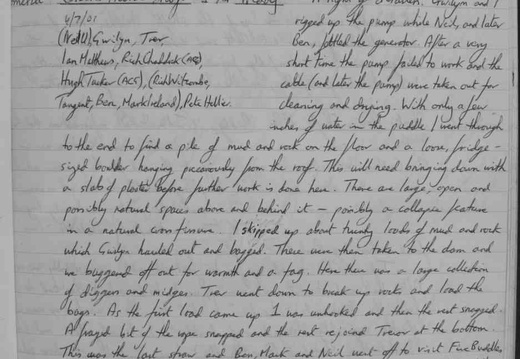 6/7/01
(Neil), Gwilym, Trev,
Ian Matthews, Rich Chaddock (ACG),
Hugh Tucker (ACG), (Rich Witcombe,
Tangent, Ben, Mark Ireland), Pete Hellier.
Gwilym and I
rigged up the pump while Neil, and later
Ben, fettled the generator. After a very
short time the pump failed to work and the
cable (and later the pump) were taken out for
cleaning and drying. With only a few
inches of water in the puddle I went through
to the end to find a pile of mud and rock on the floor and a loose, fridge-
sized boulder hanging precariously from the roof. This will need bringing down with
a slab of plaster before further work is done here. There are large, open and
possibly natural spaces above and behind it - possibly a collapse feature
in a natural cross fissure. I skipped up about twenty loads of mud and rock
which Gwilym hauled out and bagged. These were then taken to the dam and
we buggered off out for warmth and a fag. Here there was a large collection
of diggers and midges. Trev went down to break up rocks and load the
bags. As the first load came up 1 was unhooked and then the rest snagged.
A frayed bit of the rope snapped and the rest rejoined Trevor at the bottom.
This was the last straw and Ben, Mark and Neil went off to visit Five Buddles